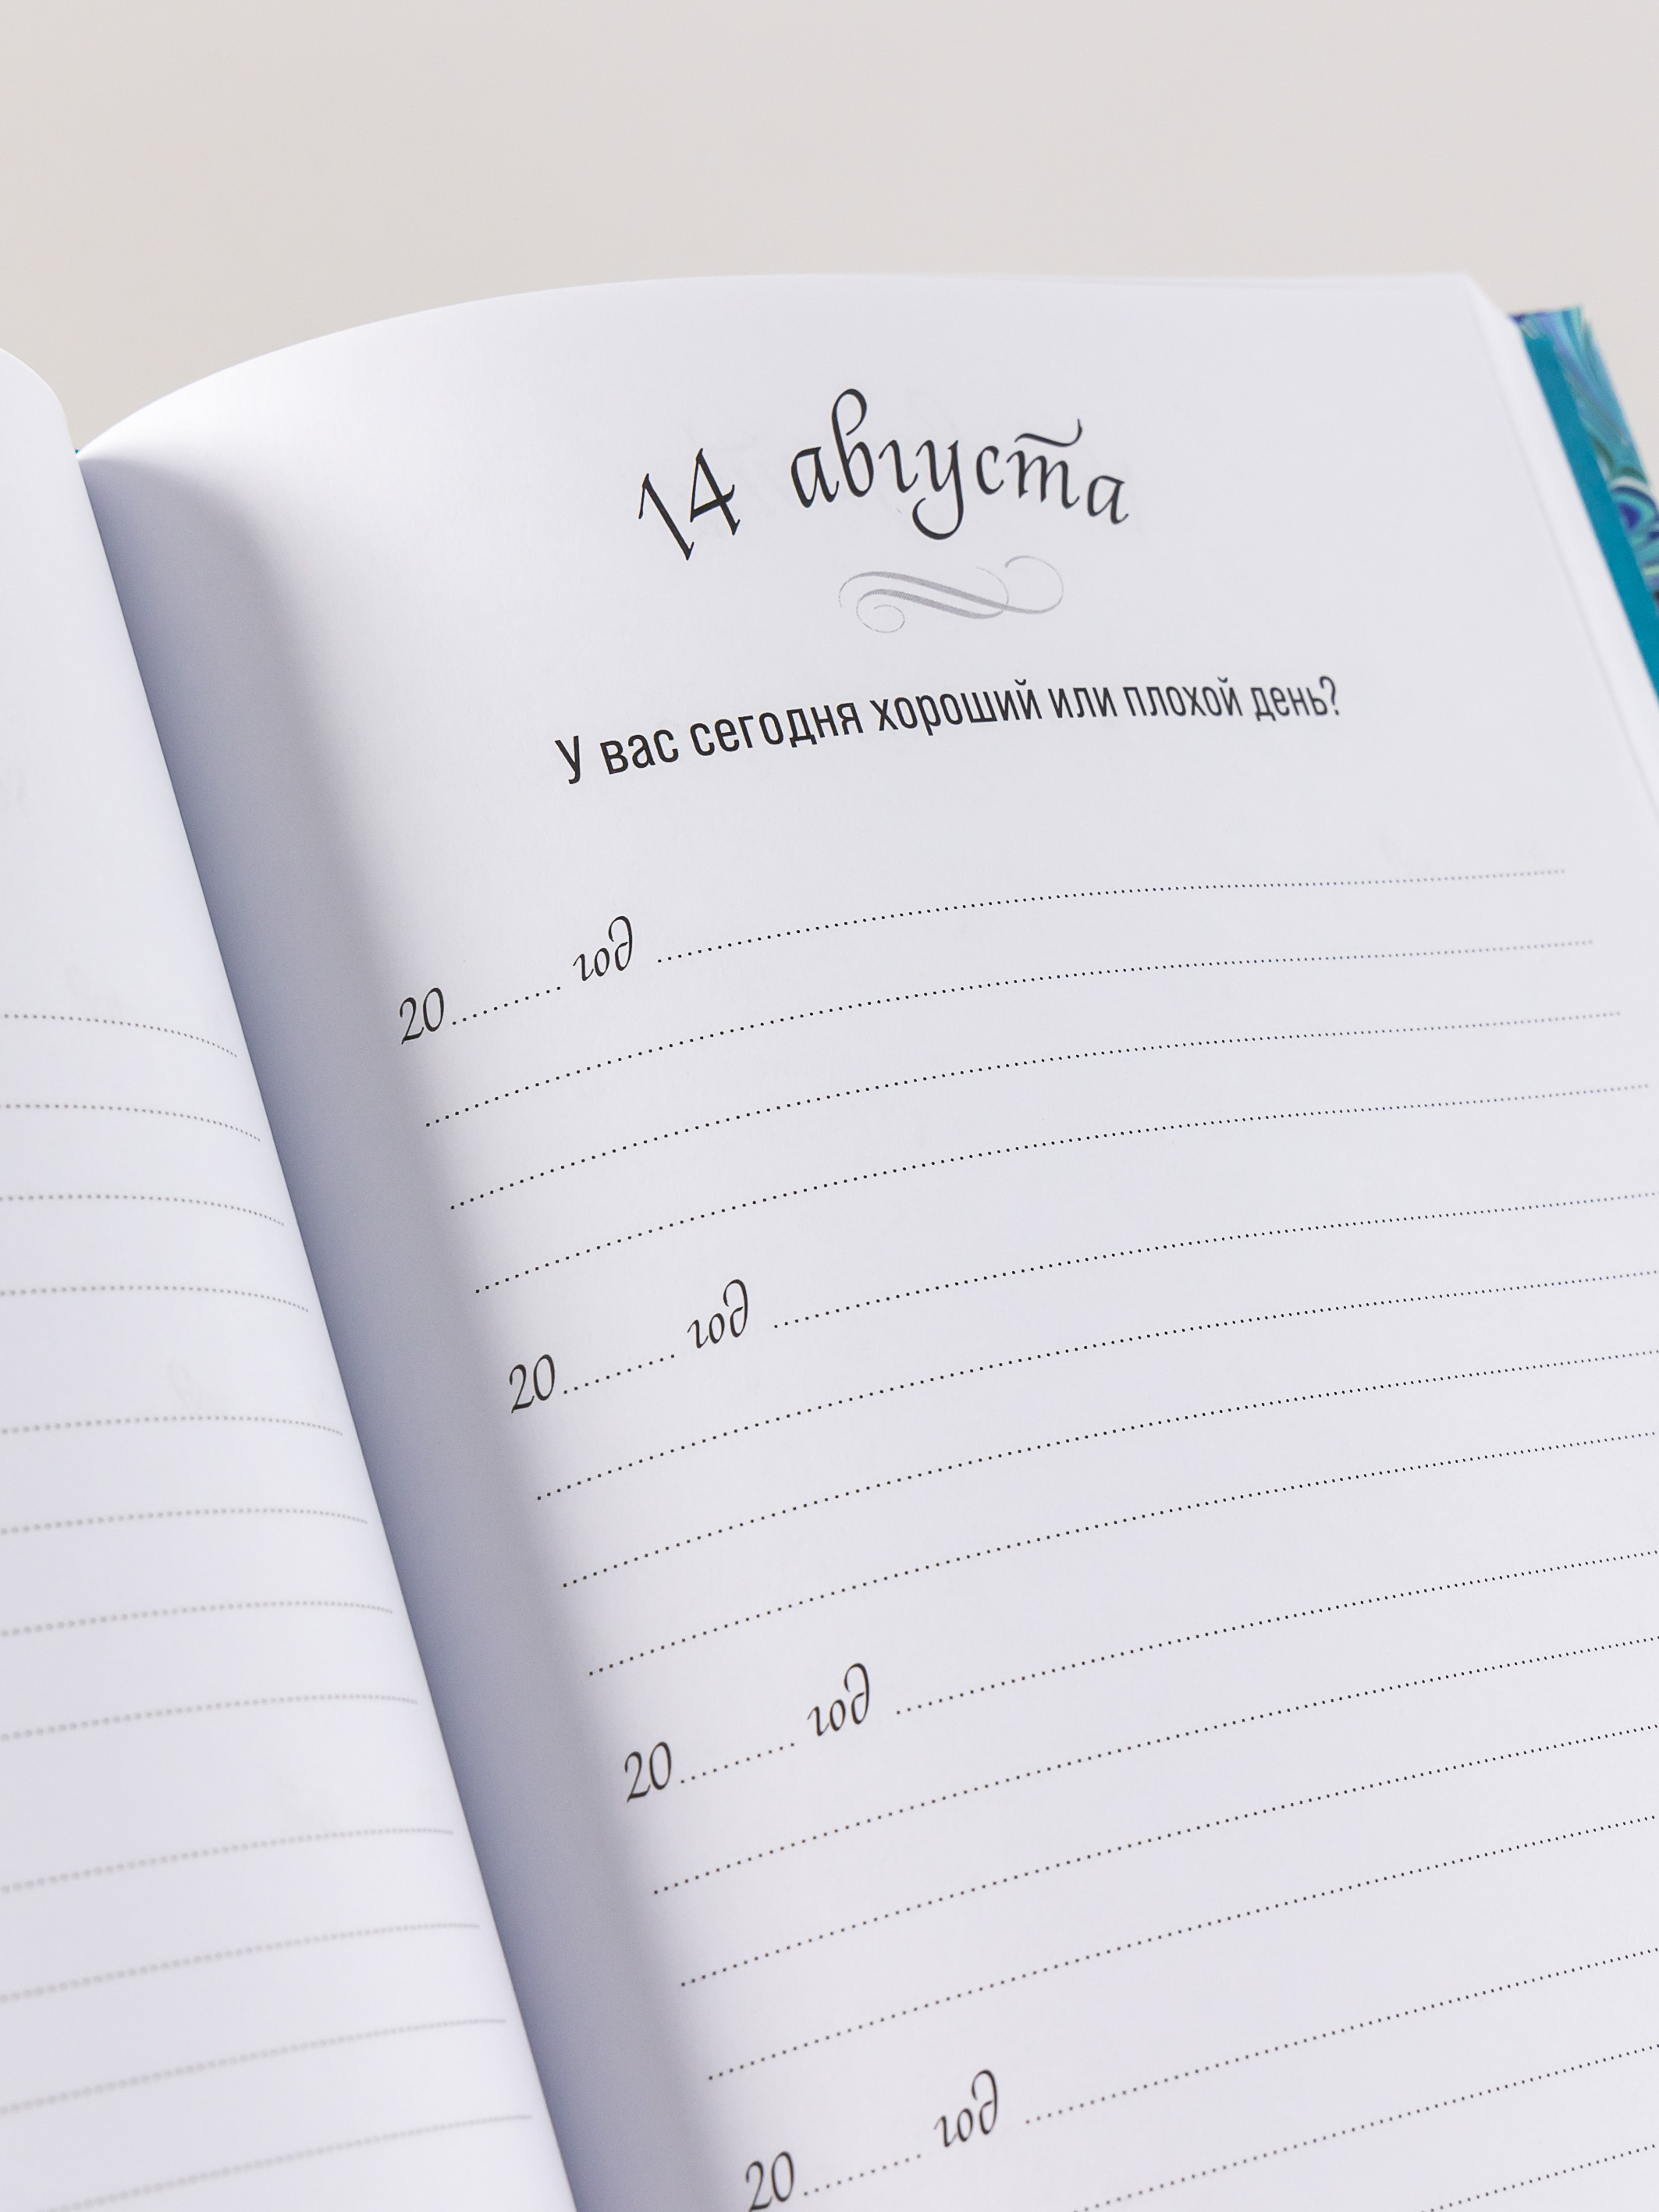 14 августа
У вас сегодня хороший или плохой день?
20.......... год
20.......... год
20.......... год
20.......... год